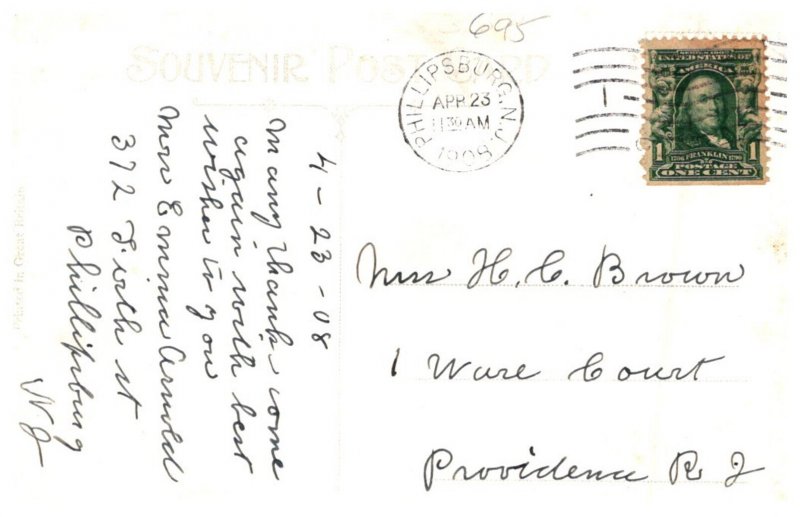 695
SOUVENIR POST CARD
PHILLIPSBURG, N.J.
APR 23
11 30 AM
1908
UNITED STATES OF
AMERICA
1706 FRANKLIN 1790
POSTAGE
1 ONE CENT
4-23-08
Many thanks come
again with best
wishes to you
Mrs Emma Arnold
372 st
Phillipsburg
N J
Printed in Great Britain
Mrs H. C. Brown
1 Ware Court
Providence R J